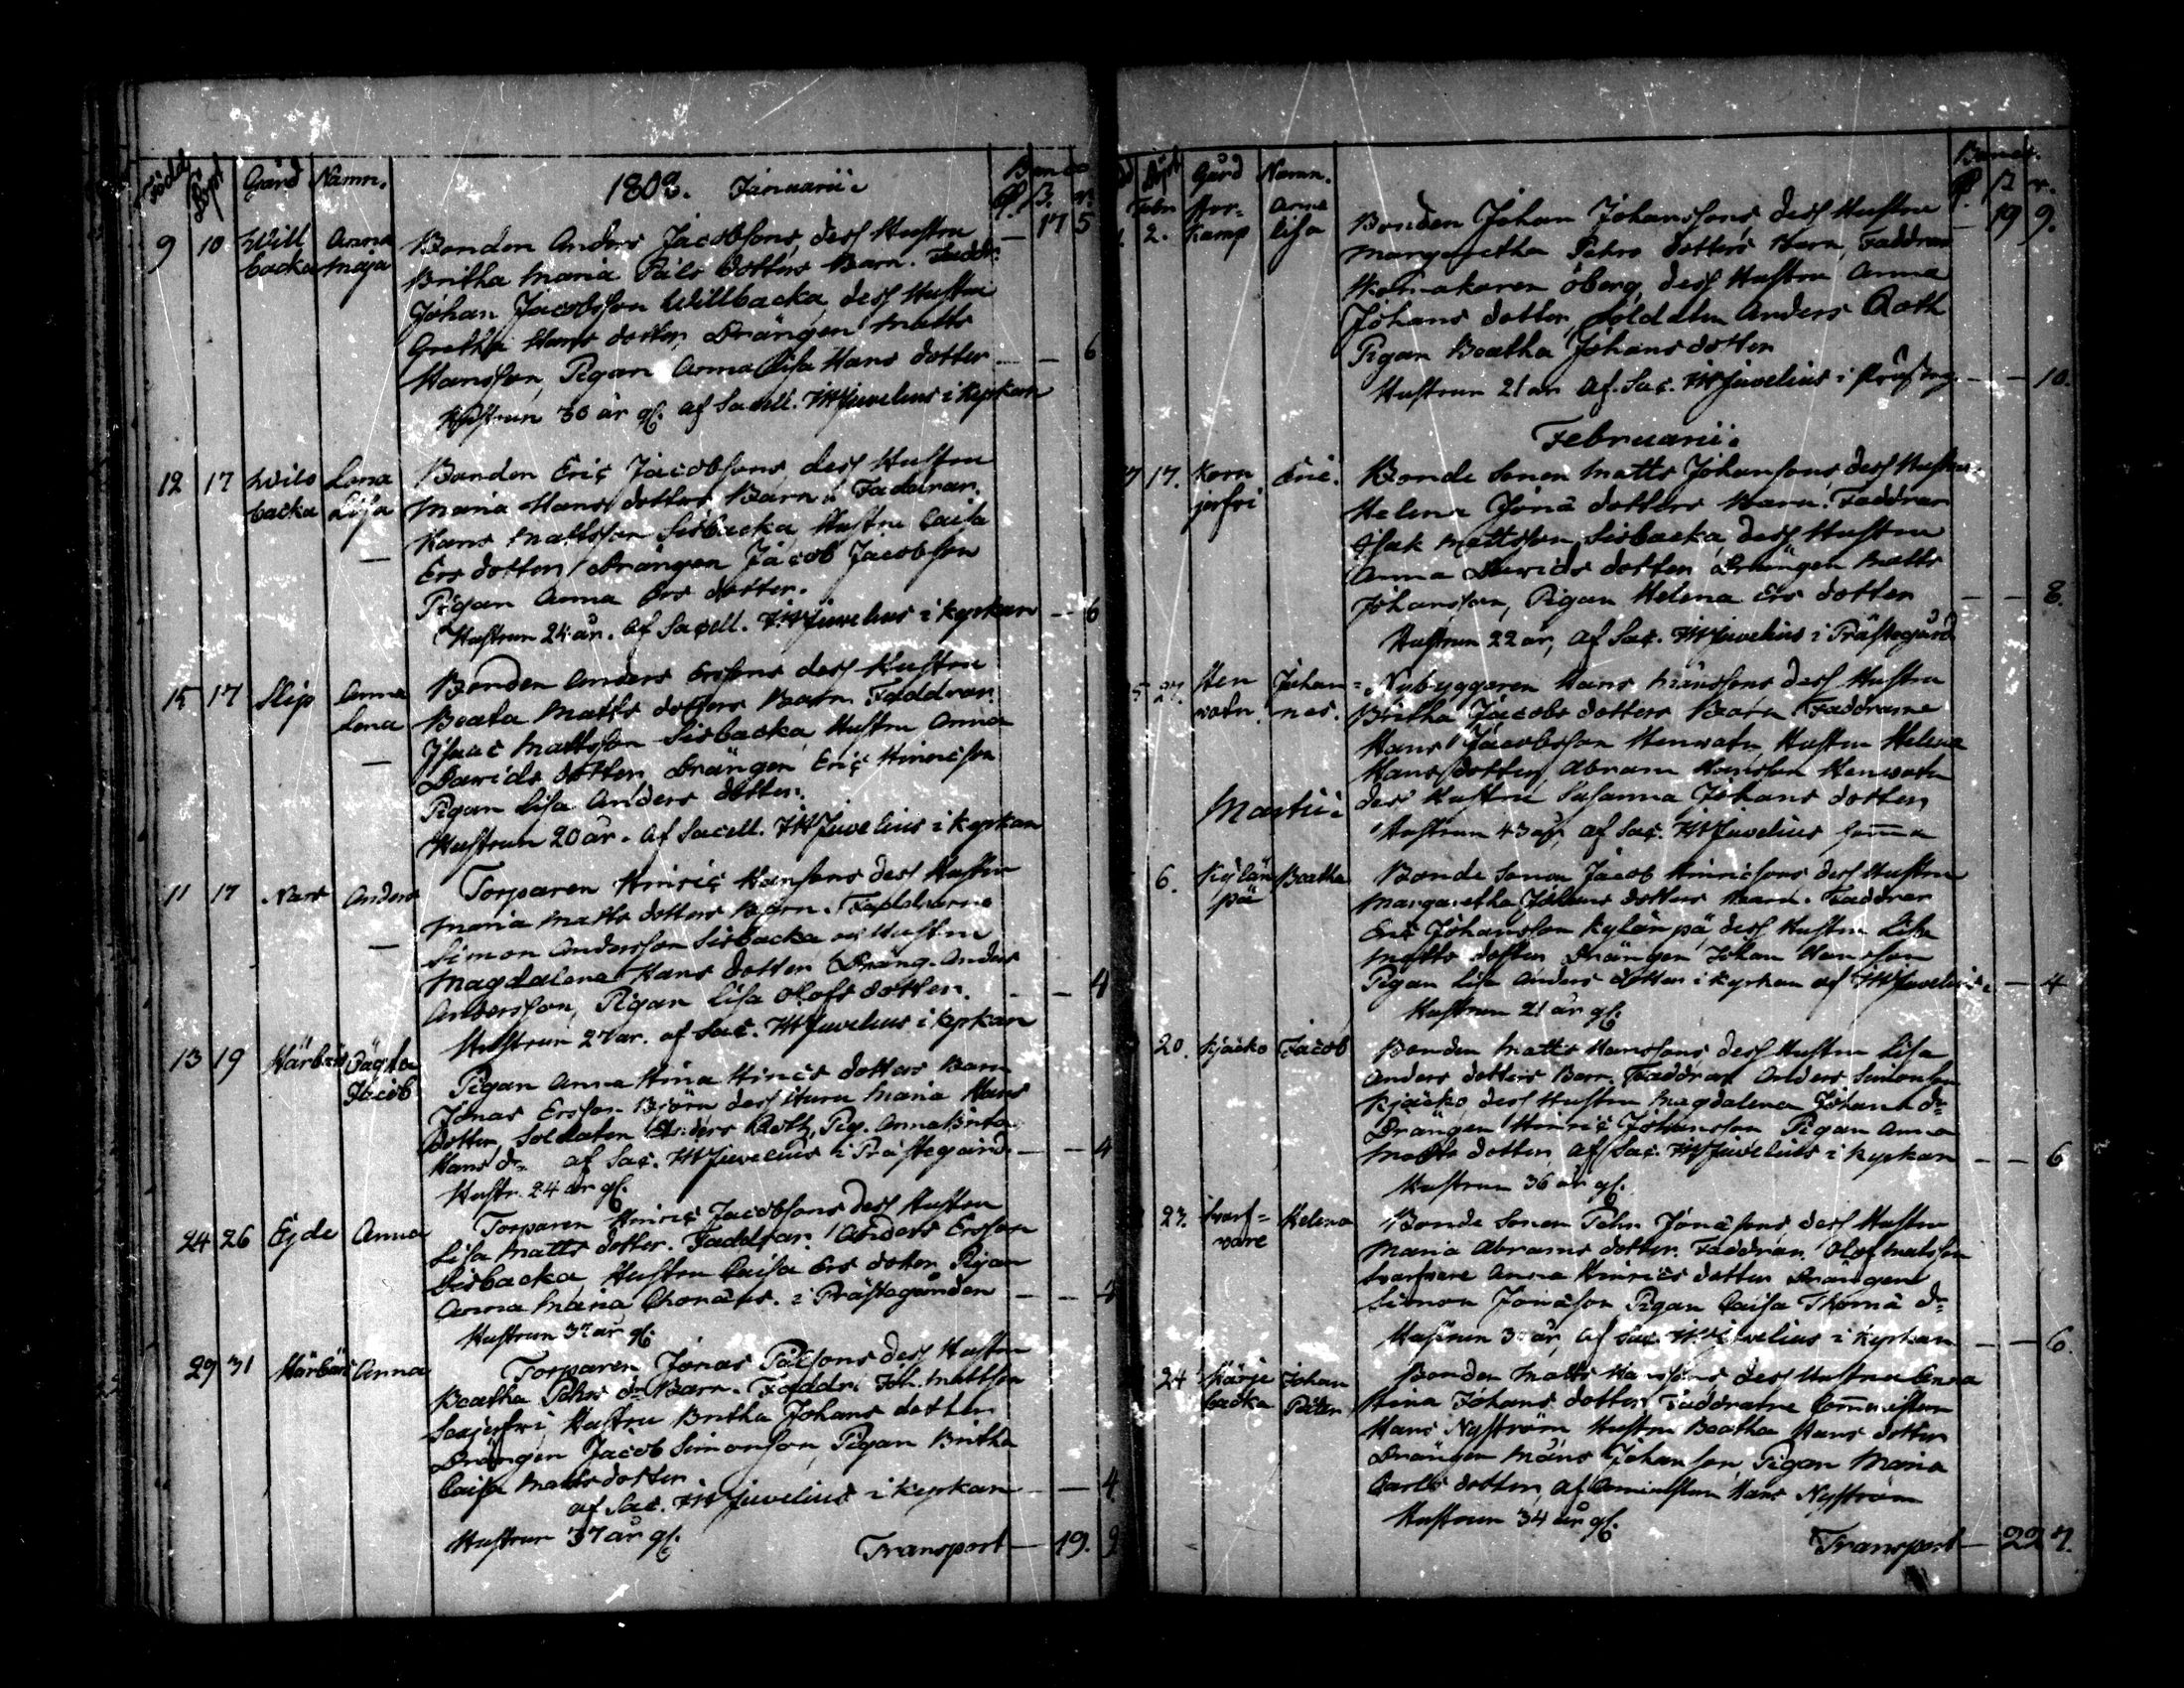 Född Döpt Gård Namn. 1808. Januarii Banco
- 17 5
9 10 Will Anna Bonden Anders Jacobsons dess Hustru
backa Maja Britha Maria Påls dotters Barn. Faddr.
Johan Jacobsson Willbacka, dess Hustru
Gretha Hans dotter Drängen Matts
Hansson, Pigan Anna Lisa Hans dotter — 6
Hustrun 30 år gl. af Sacell. JWJuvelius i Kyrkan
12 17 Wils Lena Bonden Eric Jacobsons dess Hustru
backa Lisa Maria Hans dotters Barn. Faddrar
Hans Mattsson Sisbacka Hustru Caisa
Ers dotter, Drängen Jacob Jacobsson
Pigan Anna Ers dotter.
Hustrun 24 år. af Sacell. JWJuvelius i kyrkan — 6
15 17 Slip Anna Bonden Anders Erssons dess Hustru
Lena Beata Matts dotters Barn Faddrar
Isaac Mattsson Sisbacka Hustru Anna
Davids dotter, Drängen Eric Hinricsson
Pigan Lisa Anders dotter.
Hustrun 20 år. af Sacell. JWJuvelius i kyrkan
11 17 Nars Anders Torparen Hinric Hansons dess Hustru
Maria Matts dotters Barn. Faddrarne
Simon Andersson Sisbacka Hustru
Magdalena Hans dotter Dräng. Anders
Andersson, Pigan Lisa Olofs dotter. — — 4
Hustrun 27 år. af Sac. JWJuvelius i kyrkan
13 19 Härbärs Oägta Pigan Anna Stina Hinrics dotters Barn
Jacob Jonas Ersson Björn dess Huru Maria Hans
dotter, Soldaten Anders Roth, Pig. Anna Brita
Hans dr af Sac. JWJuvelius i Prästegård — — 4
Hustr. 24 år gl.
24 26 Eyde Anna Torparen Hinric Jacobsons dess Hustru
Lisa Matts dotter. Faddrar. Anders Ersson
Sisbacka, Hustru Caisa Ers dotter Pigan
Anna Maria i Prästegården — — 4
Hustrun 37 år gl.
29 31 Härbärs Anna Torparen Jonas Pålsons dess Hustru
Beatha Pehrs dr Barn. Faddr. Joh. Mattsson
Hustru Britha Johans dotter
Drängen Jacob Simonsson, Pigan Britha
Caisa Matts dotter.
af Sac. JWJuvelius i kyrkan — — 4
Hustrun 37 år gl.
Transport — 19. 9
Döpt Gård Namn. Banco.
Febr. Stor= Anna Bonden Johan Johanssons, dess Hustru — 19 9.
2. kamp Lisa Margaretha Pehrs dotters Barn, Faddrar
Öberg, dess Hustru Anna
Johans dotter, Soldaten Anders Roth
Pigan Beatha Johansdotter
Hustrun 21 år af Sac. JWJuvelius i — — 10.
Februarii.
17. Korn Eric. Bonde Sonen Matts Johansons, dess Hustru
jerfvi Helena Jonä dotters Barn. Faddrar
Isak Mattsson Sisbacka, dess Hustru
Anna Davids dotter Drängen Matts
Johansson, Pigan Helena Ers dotter — — 8.
Hustrun 22 år, af Sac. JWJuvelius i Prästegård
27. Hen Johan= Nybyggaren Hans Månssons dess Hustru
watn. nes. Britha Jacobs dotters Barn Faddrarne
Hans Jacobsson Henwatn, Hustru Helena
Hansdotter, Abram Hansson Henwatn
Martii dess Hustru Susanna Johans dotter
Hustrun 43 år, af Sac. JWJuvelius
6. Kylän Beatha Bonde Sonen Jacob Hinricsons dess Hustru
pä Margaretha Johans dotters Barn. Faddrar
Eric Johansson kylänpä, dess Hustru Lisa
Matts dotter Drängen Johan Hansson
Pigan Lisa Anders dotter i kyrkan af JWJuvelius — 4
Hustrun 21 år gl.
20. Kjäcko Jacob Bonden Matts Hanssons dess Hustru Lisa
Anders dotters Barn. Faddrar Anders Simonson
Kjäcko dess Hustru Magdalena Johans dr
Drängen Hinric Johansson Pigan Anna
Matts dotter, af Sac. JWJuvelius i kyrkan — — 6
Hustrun 36 år gl.
23. Svart= Helena Bonde Sonen Pehr Jonäsons, dess Hustru
vare Maria Abrams dotter. Faddrar Olof Matsson
Svartvare Anna Hinrics dotter Drängen
Simon Jonäson Pigan Caisa Thomä dr
Hustrun år, af Sac. JWJuvelius i kyrkan — — 6.
24 Särje Johan Bonden Matts Hanssons dess Hustru Anna
backa Petter Stina Johans dotter Faddrarne
Hans Nyström Hustru Beatha Hans dotter
Drängen Måns Johansson Pigan Maria
Carls dotter, af Hans Nyström
Hustrun 34 år gl.
Transport — 22 7.